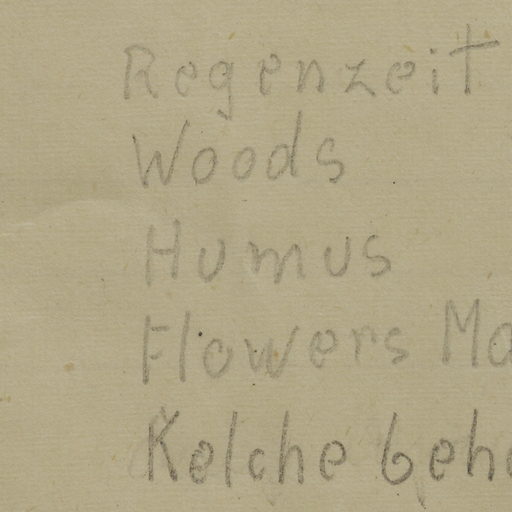 Regenzeit
Woods
Humus
Flowers Ma
Kelche behe